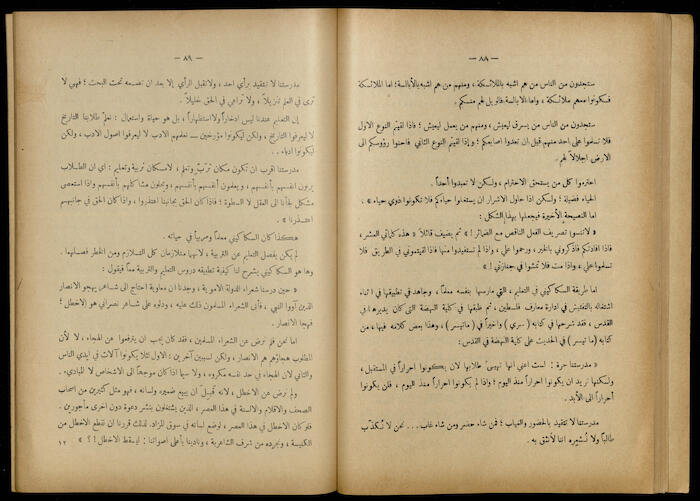 — ٨٨ —
ستجدون من الناس من هم اشبه بالملائكة ، ومنهم من هم اشبه بالأبالسة؛ اما الملائكة
فكونوا معهم ملائكة، واما الأبالسة فالويل لهم منكم.
ستجدون من الناس من يسرق ليعيش، ومنهم من يعمل ليعيش؛ فاذا لقيتم النوع الاول
فلا تسلموا على احد منهم قبل ان تعدوا اصابعكم؛ وإذا لقيتم النوع الثاني فاحنوا رؤوسكم الى
الارض إجلالاً لهم.
احترموا كل من يستحق الاحترام، ولكن لا تعبدوا أحداً.
الحياء فضيلة؛ ولكن اذا حاول الاشرار ان يستغلوا حياءكم فلا تكونوا ذوي حياء» .
اما النصيحة الأخيرة فيجعلها بهذا الشكل :
« لا تنسوا تصريف الفعل الناقص مع الضمائر ! » ثم يضيف قائلاً « هذه كلماتي العشر،
فاذا افادتكم فاذكروني بالخير، وترحموا علي، واذا لم تستفيدوا منها فاذا لقيتموني في الطريق فلا
تسلموا علي، واذا مت فلا تمشوا في جنازتي ! »
اما طريقة السكاكيني في التعليم، التي مارسها بنفسه معلماً، وجاهد في تطبيقها في اثناء
اشتغاله بالتفتيش في ادارة معارف فلسطين، ثم طبقها في كلية النهضة التي كان يديرها في
القدس ، فقد شرحها في كتابه (سري) واخيراً في (ماتيسر)، وهذا بعض كلامه فيها، من
كتابه (ما تيسر) في الحديث على كلية النهضة في القدس:
« مدرستنا حرة : لست اعني انها تهيئ طلابها لان يكونوا احراراً في المستقبل،
ولكنها تريد ان يكونوا احراراً منذ اليوم ؛ واذا لم يكونوا احراراً منذ اليوم ، فلن يكونوا
أحراراً الى الأبد .
مدرستنا لا تتقيد بالحضور والغياب ؛ فمن شاء حضر ومن شاء غاب... نحن لا نكذّب
طالباً ولا نُشعِره اننا لانثق به .
— ٨٩ —
مدرستنا لا تتقيد برأي احد ، ولا تقبل الرأي إلا بعد ان تضعه تحت البحث ؛ فهي لا
ترى في العلم تنزيلاً ، ولا تراعي في الحق خليلاً .
إن التعليم عندنا ليس ادخاراً ولا استظهاراً ، بل هو حياة واستعمال : نعلم طلابنا التاريخ
لا ليعرفوا التاريخ ، ولكن ليكونوا مؤرخين ــ نعلمهم الادب لا ليعرفوا اصول الادب ، ولكن
ليكونوا ادباء ..
مدرستنا اقرب ان تكون مكان تربّ وتعلم ، لا مكان تربية وتعليم : اي ان الطلاب
يربون انفسهم بأنفسهم ، ويعلمون أنفسهم بأنفسهم ، ويحلون مشاكلهم بأنفسهم واذا استعصى
مشكل لجأنا الى العقل لا السطوة ؛ فاذا كان الحق بجانبنا اعتذروا ، واذا كان الحق في جانبهم
اعتذرنا »
هكذا كان السكاكيني معلماً ومربياً في حياته .
لم يكن يفصل التعليم عن التربية ، لانهما متلازمان كل التلازم ومن الخطر فصلهما .
وها هو السكاكيني يشرح لنا كيفية تطبيقه دروس التعليم والتربية معاً فيقول :
« حين درسنا شعراء الدولة الاموية ، وجدنا ان معاوية احتاج الى شاعر يهجو الانصار
الذين آووا النبي ، فأبى الشعراء المسلمون ذلك عليه ، ودلوه على شاعر نصراني هو الاخطل ؛
فهجا الانصار .
اما نحن فلم نرض عن الشعراء المسلمين ، فقد كان يجب ان يترفعوا عن الهجاء ، لا لأن
المطلوب هجاؤهم هم الانصار ، ولكن لسببين آخرين : الاول لئلا يكونوا آلات في ايدي الناس
والثاني لان الهجاء في حد نفسه مكروه ، ولا سيما اذا كان موجهاً الى الاشخاص لا المبادىء.
ولم نرض عن الاخطل ، لانه قَبِل ان يبيع ضميره ولسانه ، فهو مثل كثيرين من اصحاب
الصحف والاقلام والالسنة في هذا العصر ، الذين يشتغلون بنشر دعوة دون اخرى مأجورين .
فلو كان الاخطل في هذا العصر ، لوضع لسانه في سوق المزاد. لذلك قررنا ان نقطع الاخطل من
الكنيسة ، ونجرده من شرف الشاعرية ، ونادينا بأعلى أصواتنا : ليسقط الاخطل !؟ »
١٢